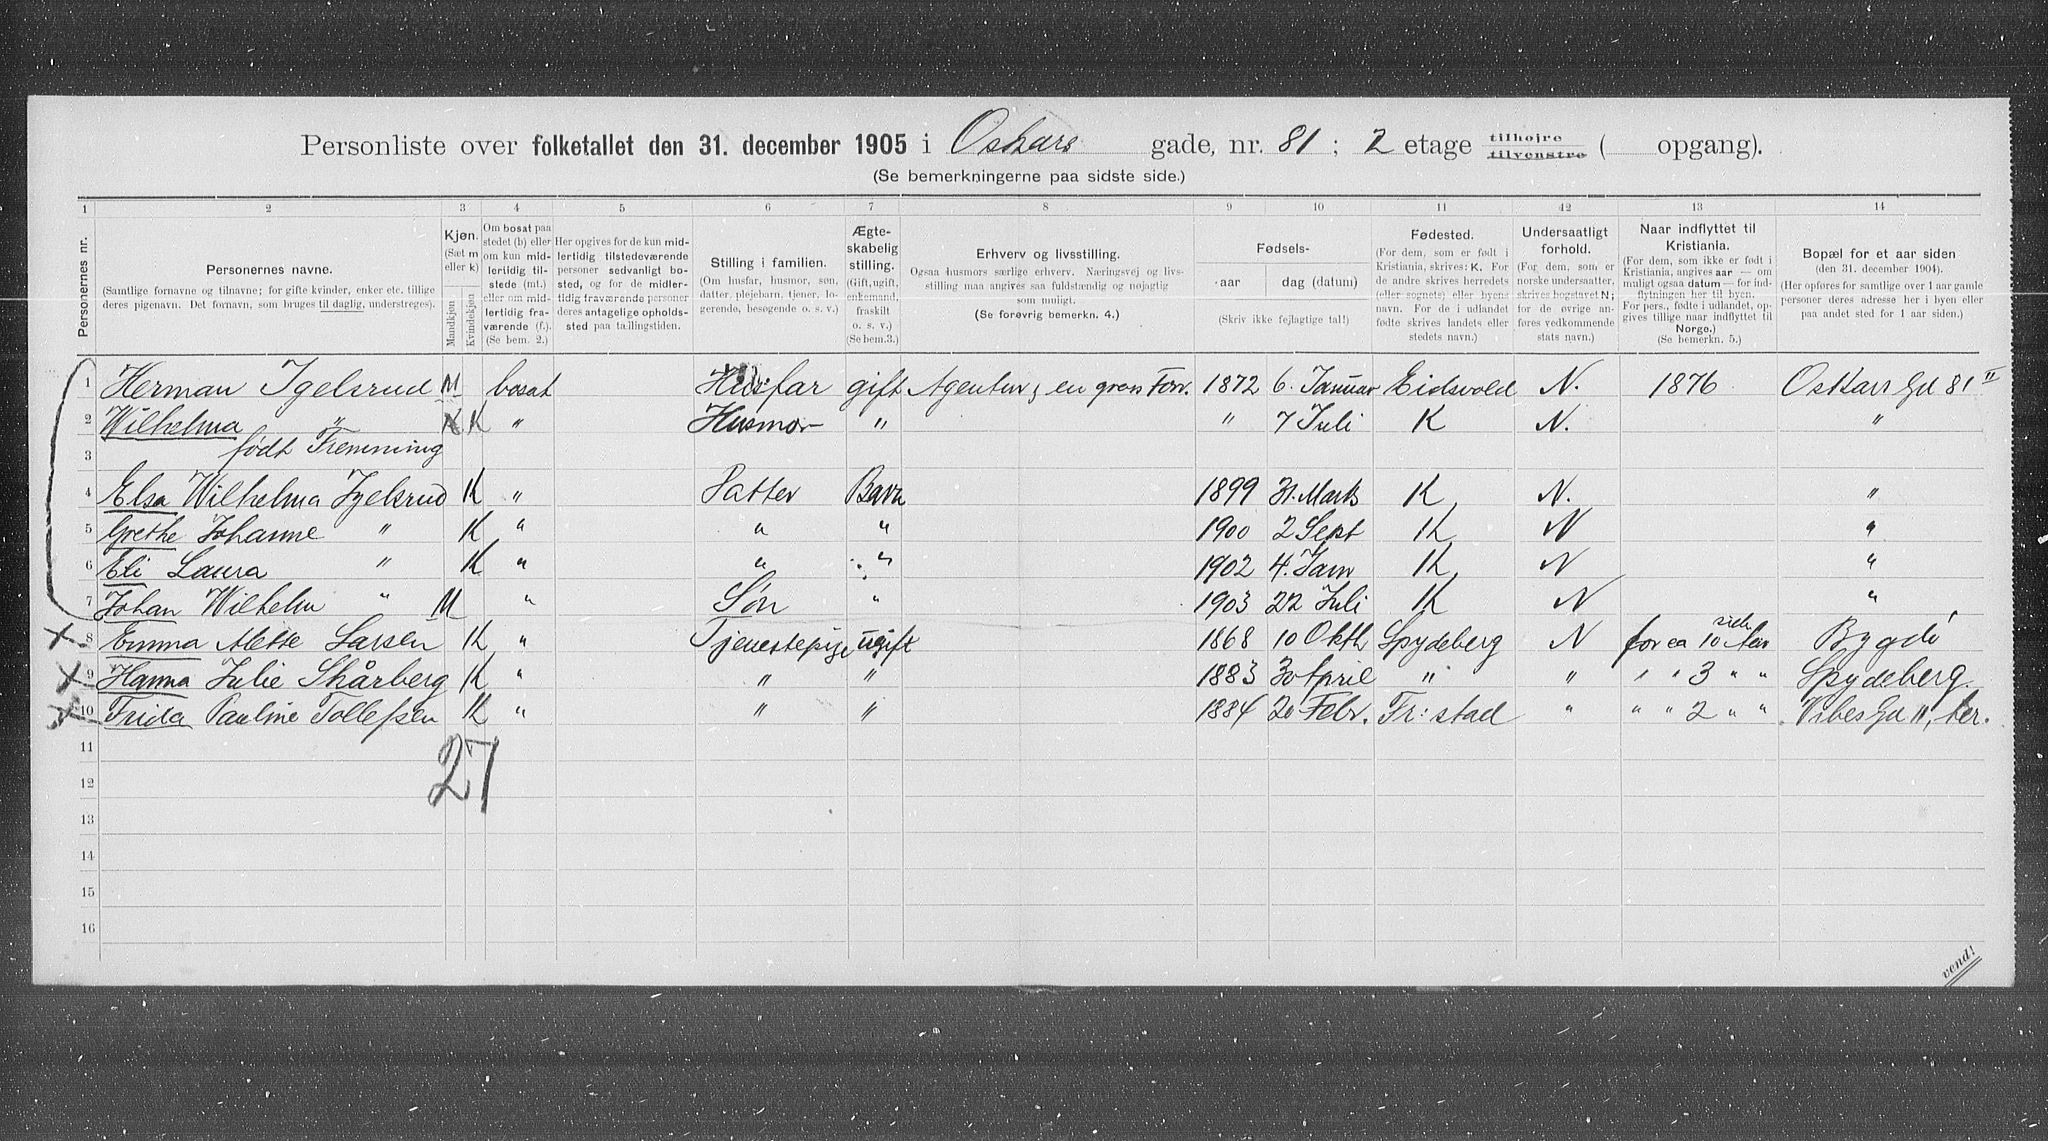 Personliste over folketallet den 31. december 1905 i Oskars gade, nr. 81 ; 2 etage tilhøire tilvenstre ( opgang).
(Se bemerkningerne paa sidste side.)
1 2 3 4 5 6 7 8 9 10 11 12 13 14
Personernes nr.
Personernes navne.
(Samtlige fornavne og tilnavne; for gifte kvinder, enker etc. tillige
deres pigenavn. Det fornavn, som bruges til daglig, understreges).
Kjøn.
(Sæt m
eller k)
Mandkjøn
Kvindekjøn
Om bosat paa
stedet (b) eller
om kun mid-
lertidig til-
stede (mt.)
eller om mid-
lertidig fra-
værende (f.).
(Se bem. 2.)
Her opgives for de kun mid-
lertidig tilstedeværende
personer sedvanlig bo-
sted, og for de midler-
tidig fraværende personer
deres antagelige opholds-
sted paa tællingstiden.
Stilling i familien.
(Om husfar, husmor, søn,
datter, plejebarn, tjener, lo-
gerende, besøgende o. s. v.)
Ægte-
skabelig
stilling.
(Gift, ugift,
enkemand,
fraskilt
o. s. v.)
(Se bem.3.)
Erhverv og livsstilling.
Ogsaa husmors særlige erhverv. Næringsvej og livs-
stilling maa angives saa fuldstændig og nøjagtig
som muligt.
(Se forøvrig bemerkn. 4.)
Fødsels-
aar dag (datum)
(Skriv ikke fejlagtige tal!)
Fødested.
(For dem, som er født i
Kristiania, skrives: K. For
de andre skrives herredets
(eller sognets) eller byens
navn. For de i udlandet
fødte skrives landets eller
stedets navn.)
Undersaatligt
forhold.
(For dem, som er
norske undersaatter,
skrives bogstavet N;
for de øvrige an-
føres vedkommende
stats navn.)
Naar indflyttet til
Kristiania.
(For dem, som ikke er født i
Kristiania, angives aar — om
muligt ogsaa datum — for ind-
flytningen her til byen.
For pers., fødte i udlandet, op-
gives tillige naar indflyttet til
Norge.)
(Se bemerkn. 5.)
Bopæl for et aar siden
(den 31. december 1904).
(Her opføres for samtlige over 1 aar gamle
personer deres adresse her i byen eller
paa andet sted for 1 aar siden.)
1 Herman Igelsrud M bosat Husfar gift Agentur, en gros Forr. 1872 6. Januar Eidsvold N. 1876 Oskars Gd 81 II
2 Wilhelma " K K " Husmor " " 7 Juli K N. "
3 født Fremming
4 Elsa Wilhelma Igelsrud K " Datter Barn 1899 31. Marts K N. "
5 Grethe Johanne " K " " " 1900 2 Sept K N "
6 Eli Laura " K " " " 1902 4. Jan K N "
7 Johan Wilhelm " M " Søn " 1903 22 Juli K N "
8 Emma Alette Larsen K " Tjenestepige ugift 1868 10 Oktb Spydeberg N for ca 10 Aar siden Bygdö
9 Hanna Julie Skårberg K " " " 1883 30 April " " " " 3 " " Spydeberg
10 Frida Pauline Tollefsen K " " " 1884 20 Febr. Fr: stad " " " 2 " " Vibes Gd 11,
11
27
12
13
14
15
16
vend!